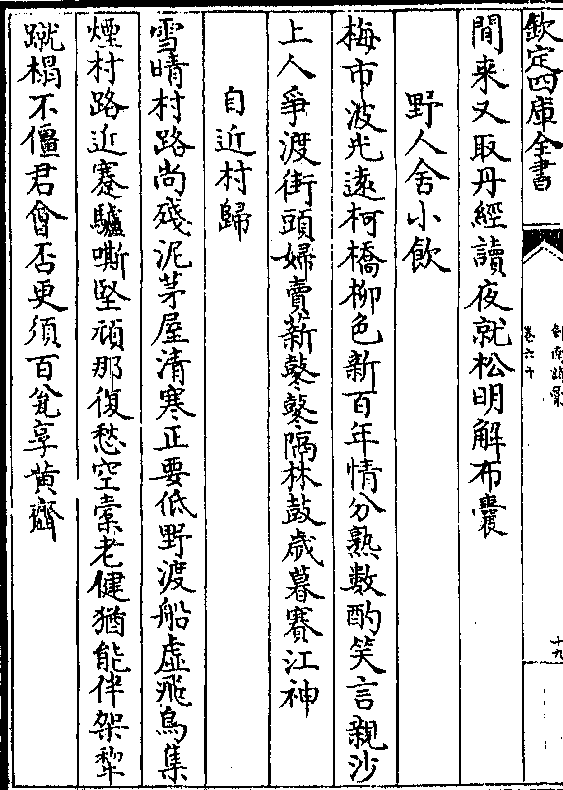 欽定四庫全書
劍南詩稾
卷六十
十九
閒来又取丹經讀夜就松明解布囊
野人舍小飲
梅市波光遠柯橋柳色新百年情分熟數酌笑言親沙
上人爭渡街頭婦賣薪鼕鼕隔林鼓歲暮賽江神
自近村歸
雪晴村路尚殘泥茅屋清寒正要低野渡船虛飛鳥集
煙村路近蹇驢嘶堅頑那復愁空橐老健猶能伴架犂
蹴榻不僵君會否更須百瓮享黄虀